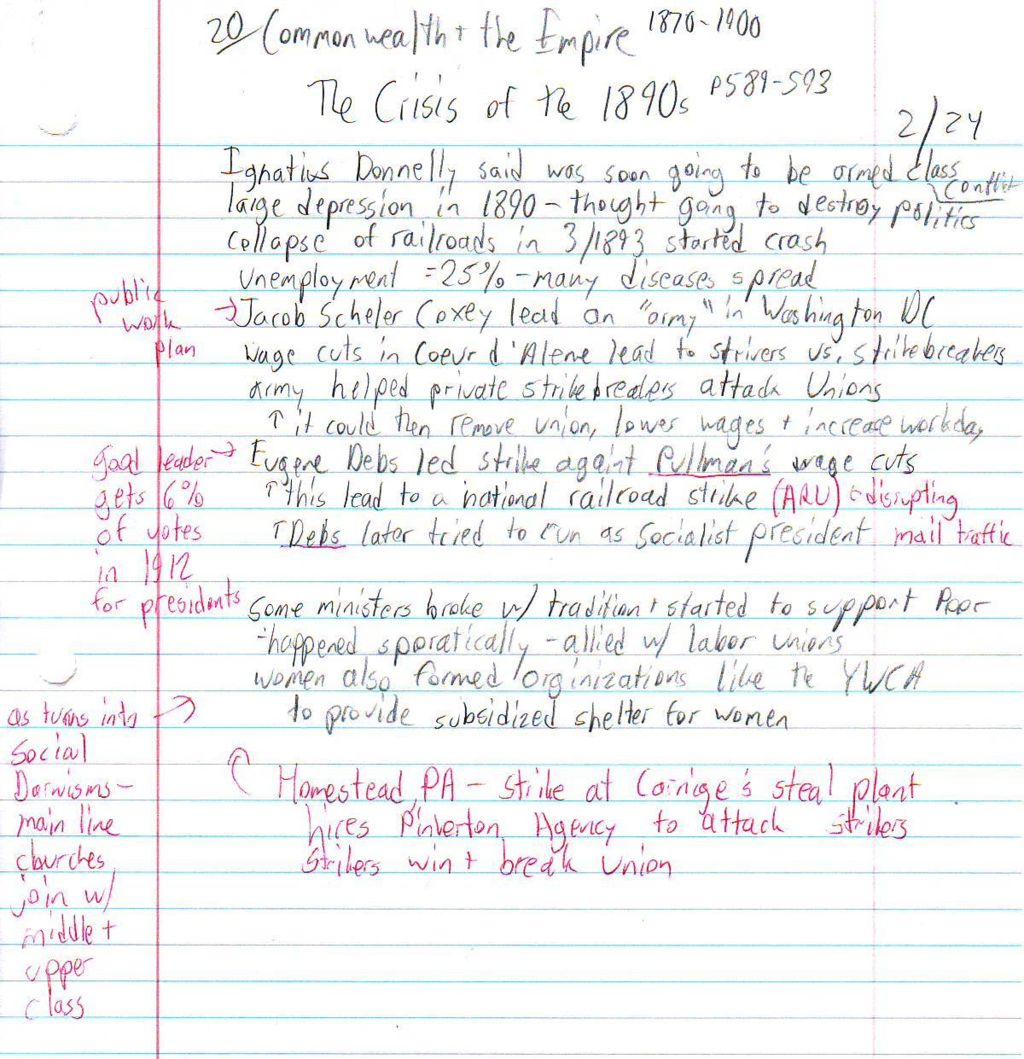 20 Commonwealth + the Empire 1870-1900
The Crisis of the 1890s p589-593
2/24
Ignatius Donnelly said was soon going to be armed class
conflict
large depression in 1890 - thought going to destroy politics
collapse of railroads in 3/1893 started crash
Unemployment = 25% - many diseases spread
public
work
plan
→ Jacob Scheler Coxey lead an "army" in Washington DC
wage cuts in Coeur d'Alene lead to strivers vs. strikebreakers
army helped private strikebreakers attack Unions
↑ it could then remove union, lower wages + increase workday
good leader →
gets 6%
of votes
in 1912
for presidents
Eugene Debs led strike againt Pullman's wage cuts
↑ this lead to a national railroad strike (ARU) - disrupting
mail traffic
↑ Debs later tried to run as Socialist president
Some ministers broke w/ tradition + started to support Poor
- happened sporatically - allied w/ labor unions
women also formed orginizations like the YWCA
to provide subsidized shelter for women
as turns into
Social
Darwisms -
main line
churches
join w/
middle +
upper
class
Homestead, PA - strike at Carnige's steal plant
hires Pinkerton Agency to attack strikers
Strikers win + break union